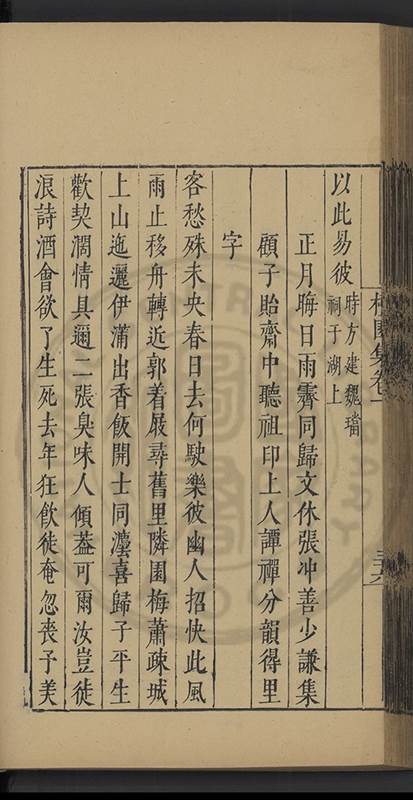 以此易彼 時方建魏璫
祠于湖上
正月晦日雨霽同歸文休張冲善少謙集
顧子貽齋中聽祖印上人譚禪分韻得里
字
客愁殊未央春日去何駛樂彼幽人招快此風
雨止移舟轉近郭着屐尋舊里隣園梅蕭疎城
上山迤邐伊蒲出香飯開士同灋喜歸子平生
歡契濶情具邇二張臭味人傾葢可爾汝豈徒
浪詩酒會欲了生死去年狂飲徒奄忽喪子美